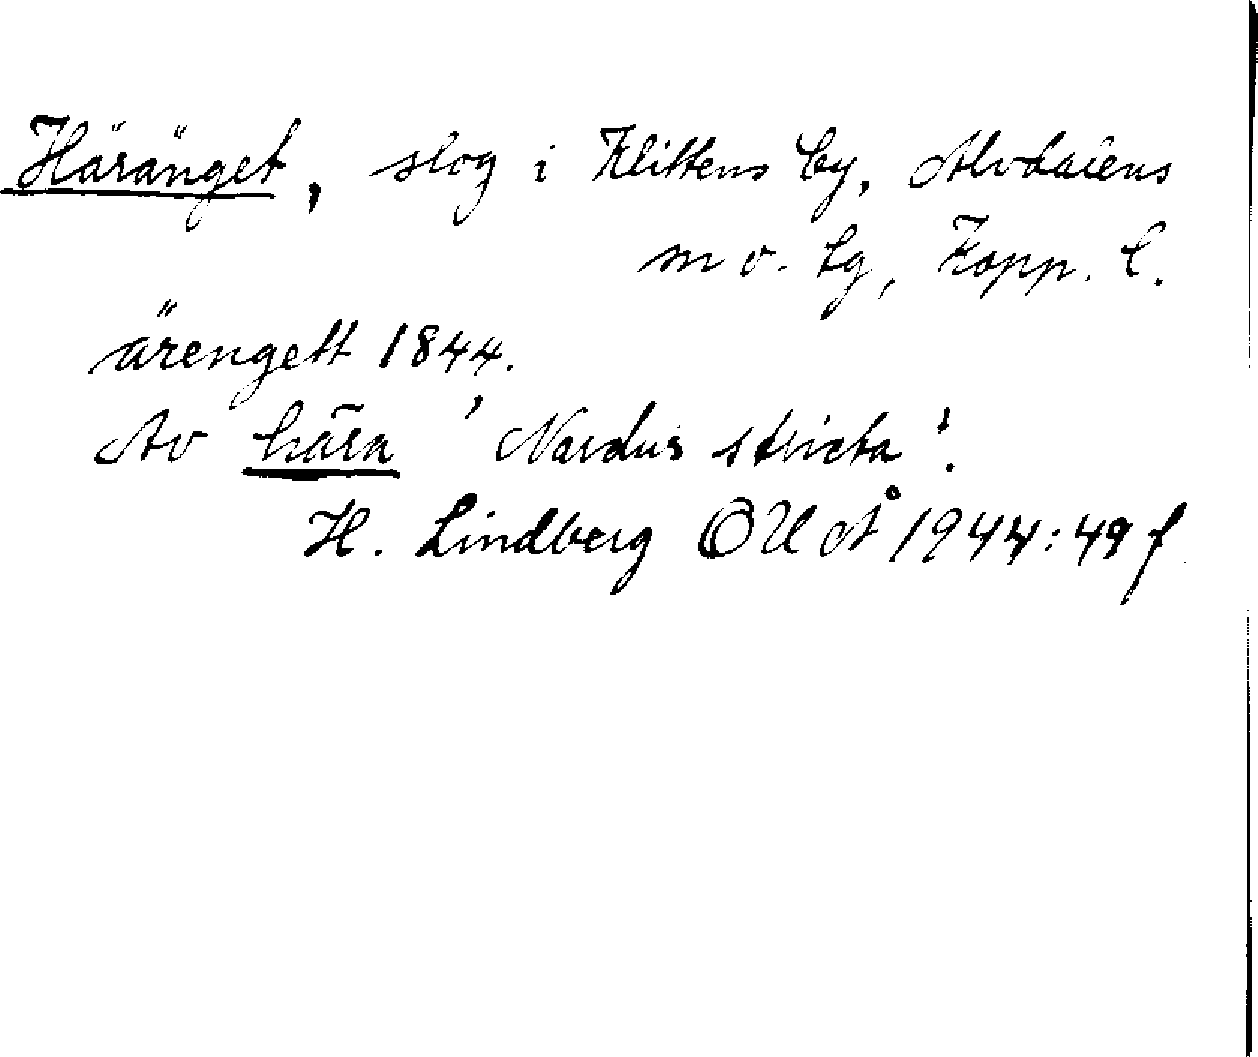 Häränget, slog i Klittens by, Älvdalens
m o. tg, Kopp. l.
ärengett 1844.
Av hära 'Nardus stricta'.
H. Lindberg OUÅ 1944:49 f